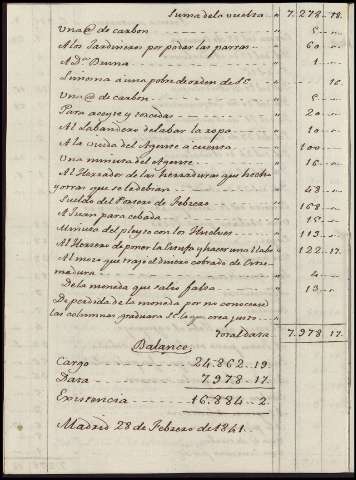 Suma de la vuelta " 7.278 - 18.
Una @ de carbon " 5 -
A los Jardineros por podar las parras " 60 -
A Dn Bruna " 1 -
Limosna a una pobre de orden de S.E. 16.
Una @ de carbon " 5 -
Para aceyte y torcidas " 20 -
Al Labandero de labar la ropa " 10 -
A la viuda del Agente a cuenta " 100 -
Una minuta del Agente " 16 -
Al Herrador de las herraduras que hecho
y otras que se le debian " 48 -
Sueldo del Portero de Febrero " 168 -
A Juan para cebada " 15 -
Minuta del pleyto con los " 113 -
Al Herrero de poner la estufa y hacer una llabe " 122 . 17.
Al mozo que trajo el dinero cobrado de Estre-
madura " 4 -
De la moneda que salio falsa " 13 -
De perdida de la moneda por no conocerse
las columnas graduara S.E. lo que crea justo
Total data 7.978 . 17.
Balance.
Cargo 24.862 . 19.
Data 7.978 - 17.
Existencia 16.884 .. 2.
Madrid 28 de Febrero de 1841.